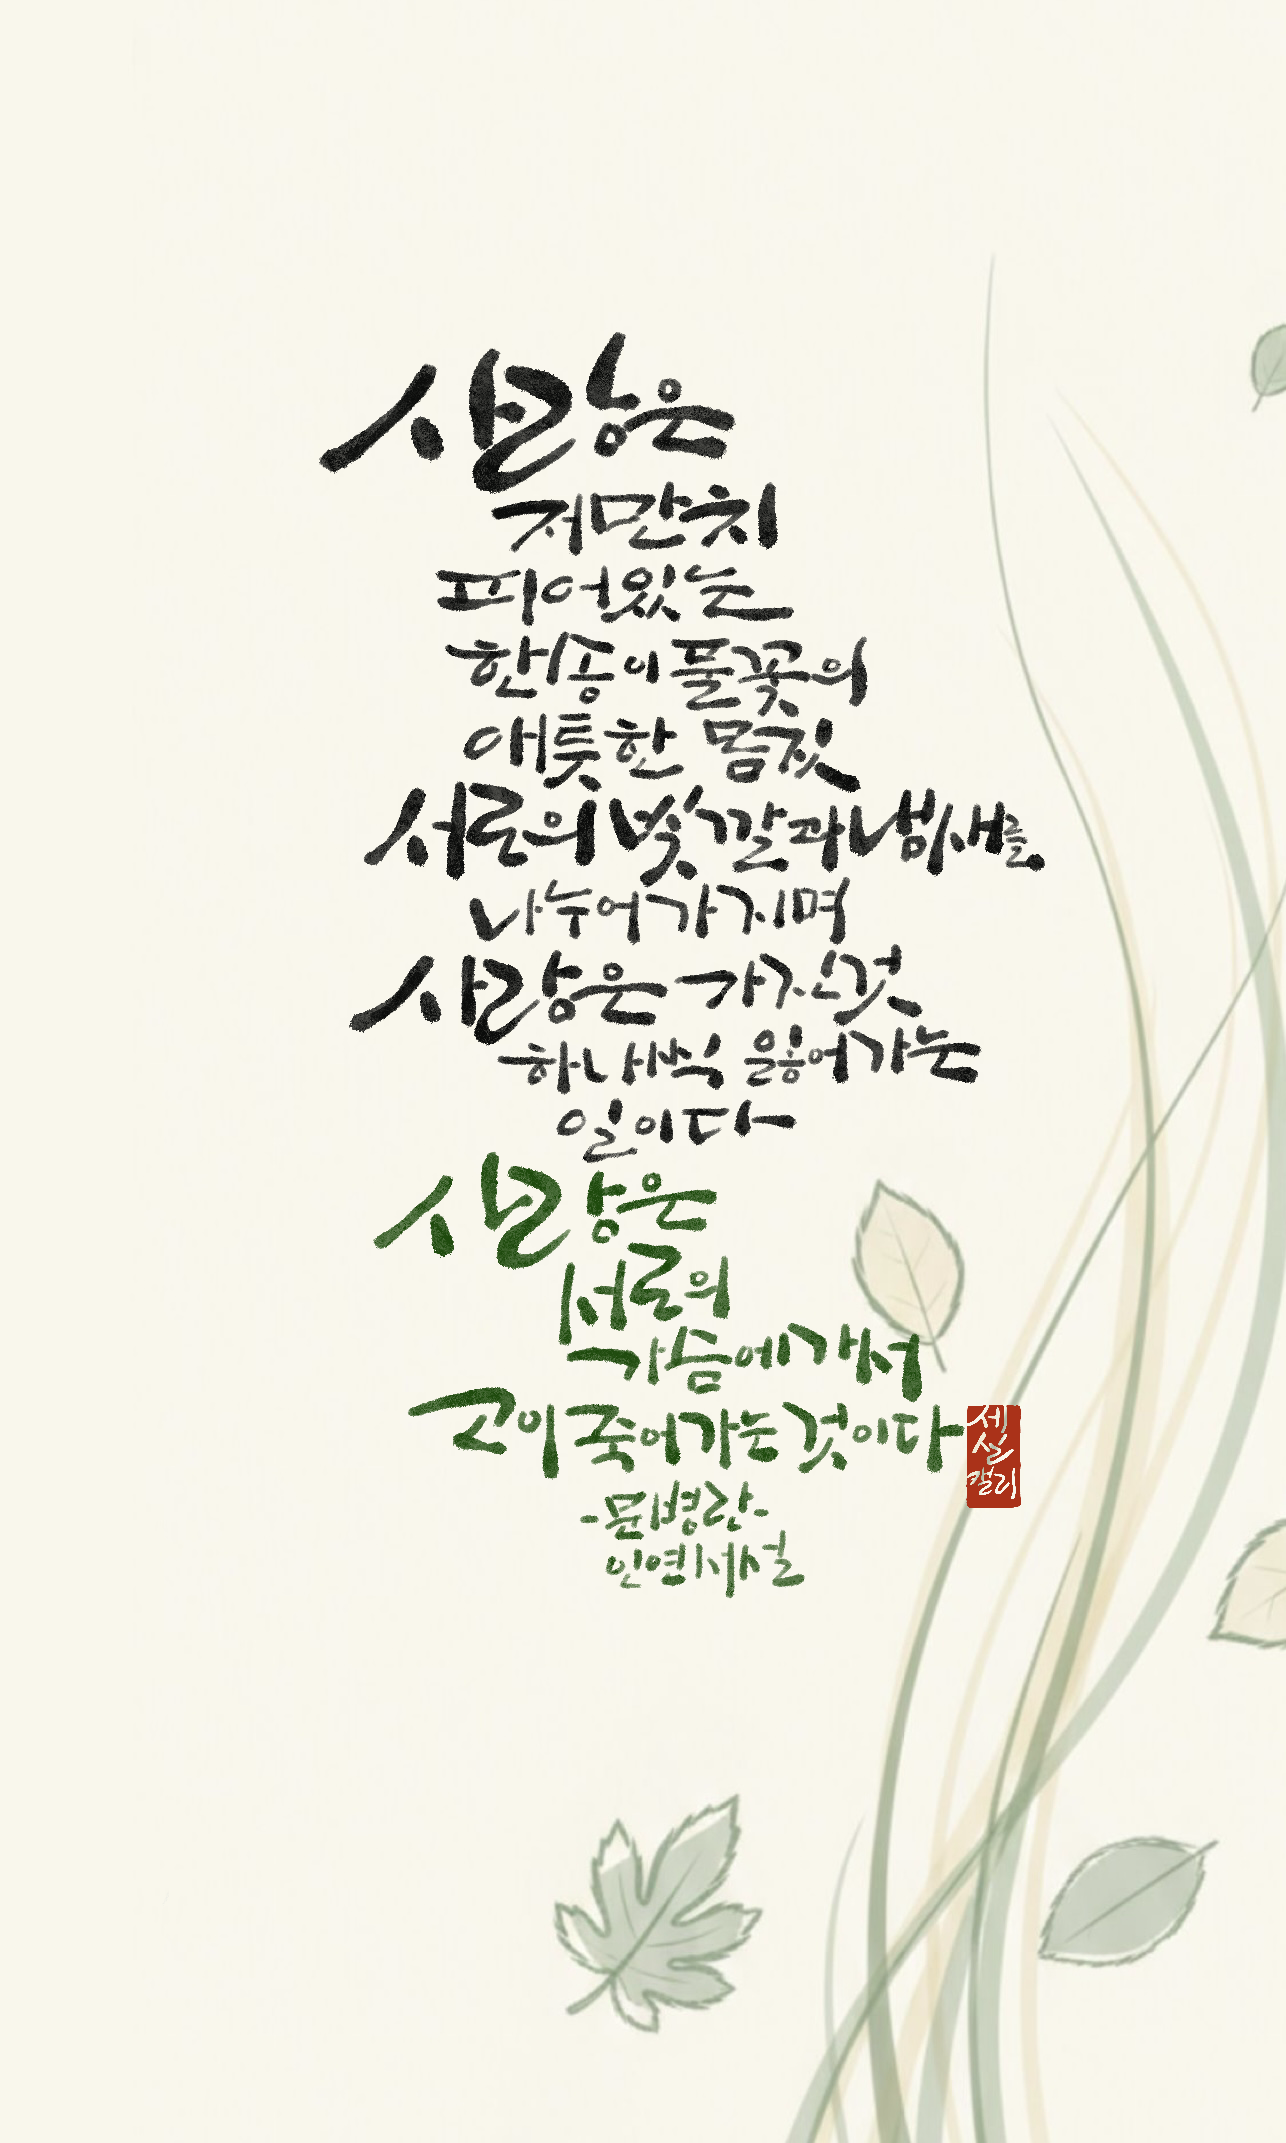 사랑은
저만치
피어있는
한송이 풀꽃의
애틋한 몸짓
서로의 빛깔과 냄새를
나누어 가지며
사랑은 가진것
하나씩 잃어가는
일이다
사랑은
서로의
가슴에 가서
고이 죽어가는 것이다
세실캘리
-문병란-
인연서설